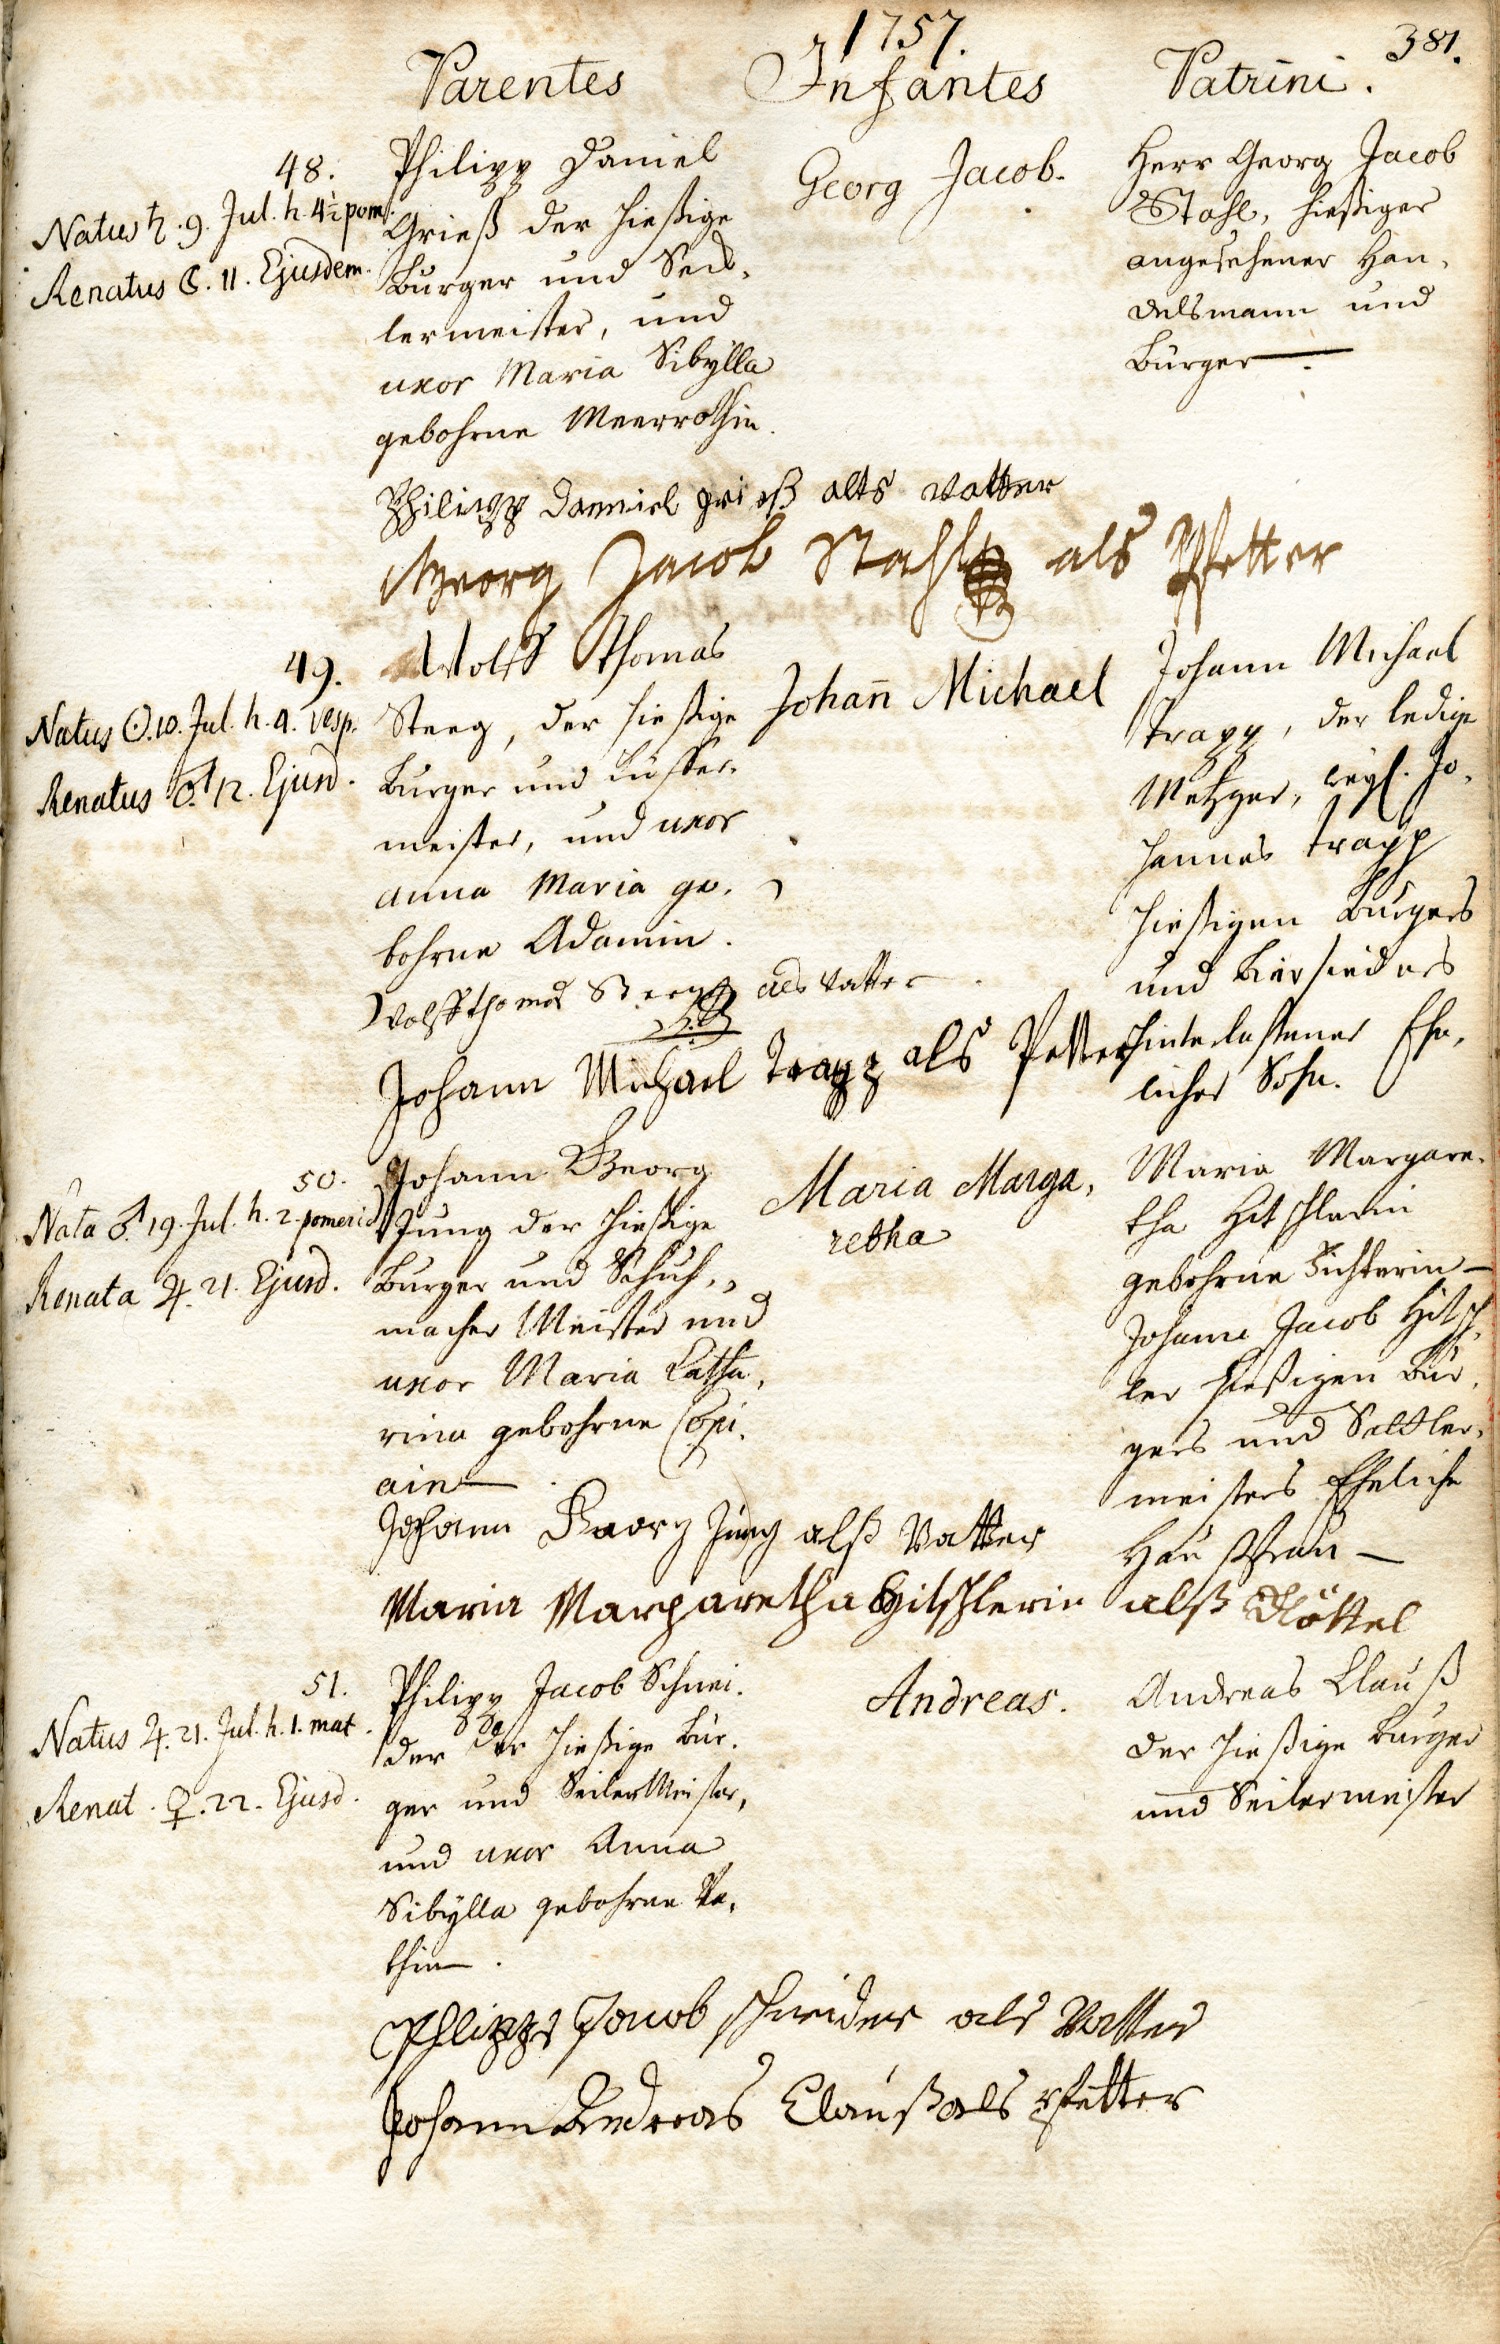 1757.
381.
Parentes Infantes Patrini.
48.
Natus ♄. 9. Jul. h. 4½ pom.
Renatus ☾. 11. Ejusdem.
Philipp Daniel
Grieß der hießige
Burger und Seck-
lermeister, und
uxor Maria Sibÿlla
gebohrne Meerrothin.
Georg Jacob.
Herr Georg Jacob
Stahl, hießiger
angesehener Han-
delsmann und
Burger
Philipp Danniel grieß alts vatter
Georg Jacob Stahl als Pfetter
49.
Natus ☉. 10. Jul. h. 9. vesp.
Renatus ♂ 12. Ejusd.
Wolff Thomas
Steeg, der hießige
Burger und Küffer-
meister, und uxor
Anna Maria ge-
bohrne Adamin.
Johañ Michael
Johann Michael
Trapp, der ledige
Metzger, weyl. Jo-
hannes Trapp
hießigen Burgers
und Biersieders
hinterlaßener Ehe-
licher Sohn.
Wolff thomas Steeg als vatter
Johann Michael Trapp als Petter
50.
Nata ♂ 19. Jul. h. 2. pomerid.
Renata ♃. 21. Ejusd.
Johann Georg
Jung der hießige
Burger und Schuh-
macher Meister und
uxor Maria Catha-
rina gebohrne Copi-
ain
Maria Marga-
retha
Maria Margare-
tha Hitschlerin
gebohrne Richterin
Johann Jacob Hitsch-
ler hießigen Bur-
gers und Sattler-
meisters Eheliche
Haußfrau
Johann Georg Jung alß Vatter
Maria Margaretha Hitschlerin alß Göttel
51.
Natus ♃. 21. Jul. h. 1. mat.
Renat. ♀. 22. Ejusd.
Philipp Jacob Schnei-
der der hießige Bur-
ger und Seiler Meister,
und uxor Anna
Sibÿlla gebohrne Ve-
thin.
Andreas.
Andreas Clauß
der hießige Burger
und Seilermeister
Phlipps Jacob schneider als Vatter
Johann Andreas Clauß als Pfetter